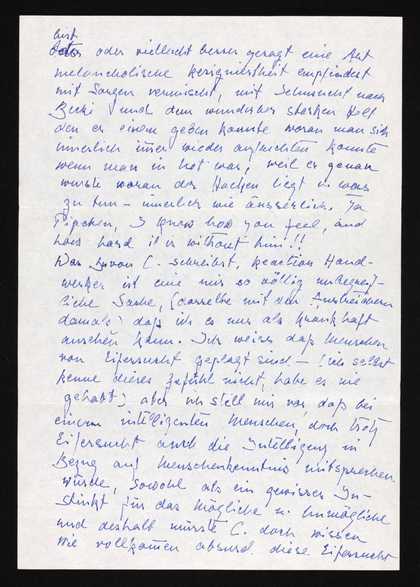 lust
oder vielleicht besser gesagt eine Art
melancholische Resigniertheit empfindet
mit Sorgen vermischt, mit Sehnsucht nach
und dem wunderbar starken Halt
den er einem geben konnte woran man sich
innerlich immer wieder aufrichten konnte
wenn man in Not war, weil er genau
wusste woran der Hacken liegt u. was
zu tun – innerlich wie äusserlich. Ja
I know how you feel, and
how hard it is without him!!
Was Du von C. schreibst, Reaction Hand-
werker ist eine mir so völlig unbegreif-
liche Sache, (dasselbe mit den Anstreichern
damals) dass ich es nur als krankhaft
ansehen kann. Ich weiss dass Menschen
von Eifersucht geplagt sind – (ich selbst
kenne dieses Gefühl nicht, habe es nie
gehabt) aber ich stell mir vor dass bei
einem intelligenten Menschen doch trotz
Eifersucht auch die Intelligenz in
Bezug auf Menschenkenntnis mitsprechen
würde, sowohl als ein gewisser In-
stinkt für das Mögliche u. Unmögliche
und deshalb müsste C. doch wissen
wie vollkommen absurd diese Eifersucht